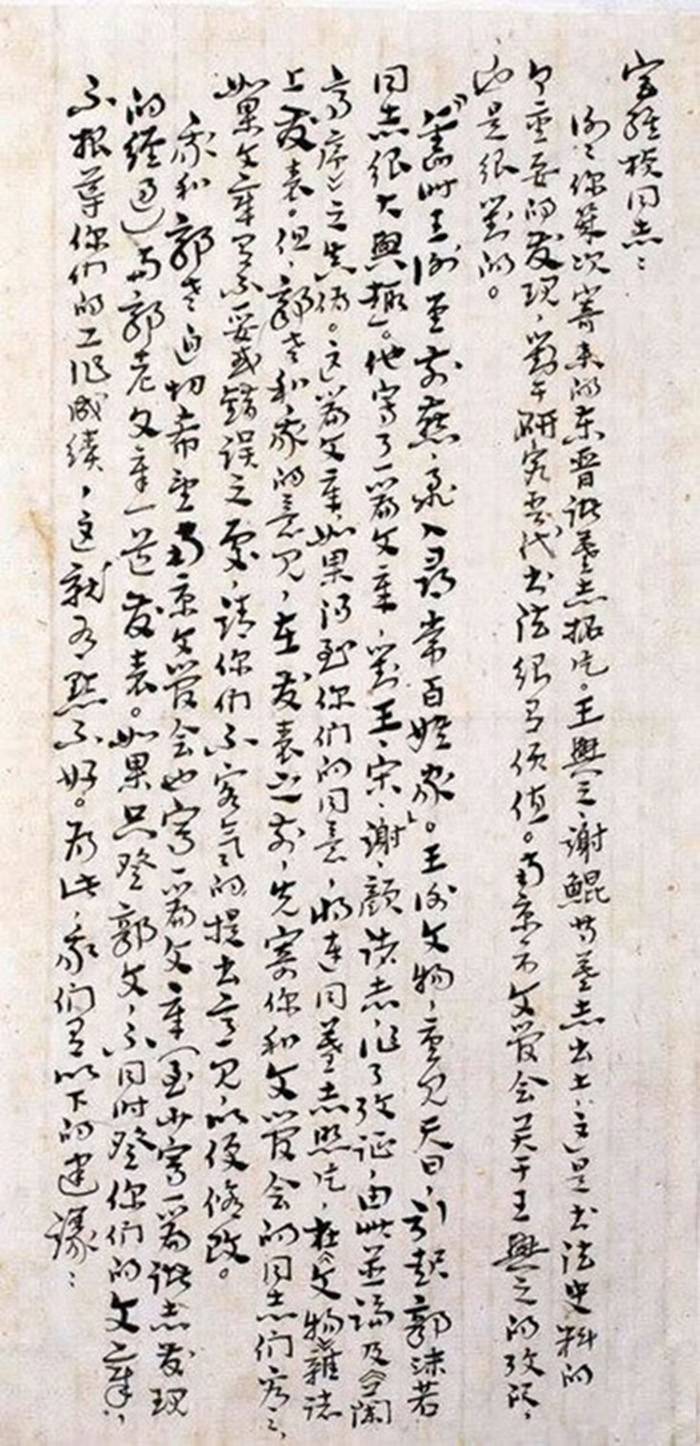 宝经校同志：
谢谢你几次寄来的东晋诸墓志拓片。王兴之、谢鲲等墓志出土，这是书法史料的
重要的发现，对于研究晋代书法很有价值。南京市文管会关于王兴之的考证，
也是很对的。
“旧时王谢堂前燕，飞入寻常百姓家”。王谢文物，重见天日，引起郭沫若
同志很大兴趣。他写了一篇文章，对王、宋、谢、颜诸志，作了考证，由此并论及《兰
亭序》之真伪。这篇文章，如果得到你们的同意，将连同墓志照片，在《文物》杂志
上发表。但，郭老和我的意见，在发表之前，先寄你和文管会的同志们看看，
如果文章有不妥或错误之处，请你们不客气的提出意见，以便修改。
我和郭老迫切希望南京文管会也写一篇文章（至少写一篇诸志发现
的经过）与郭老文章一道发表。如果只登郭文，不同时登你们的文章，
不报导你们的工作成绩，这就有点不好。为此，我们有以下的建议：